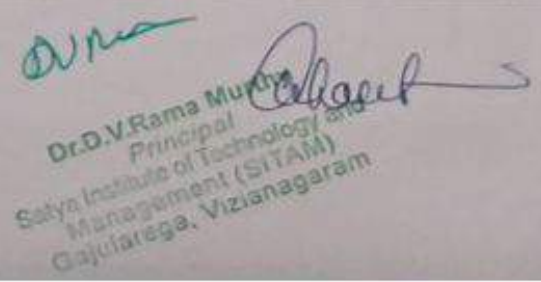 Dr.D.V.Rama Murthy
Principal
Satya Institute of Technology and
Management (SITAM)
Gajularega, Vizianagaram